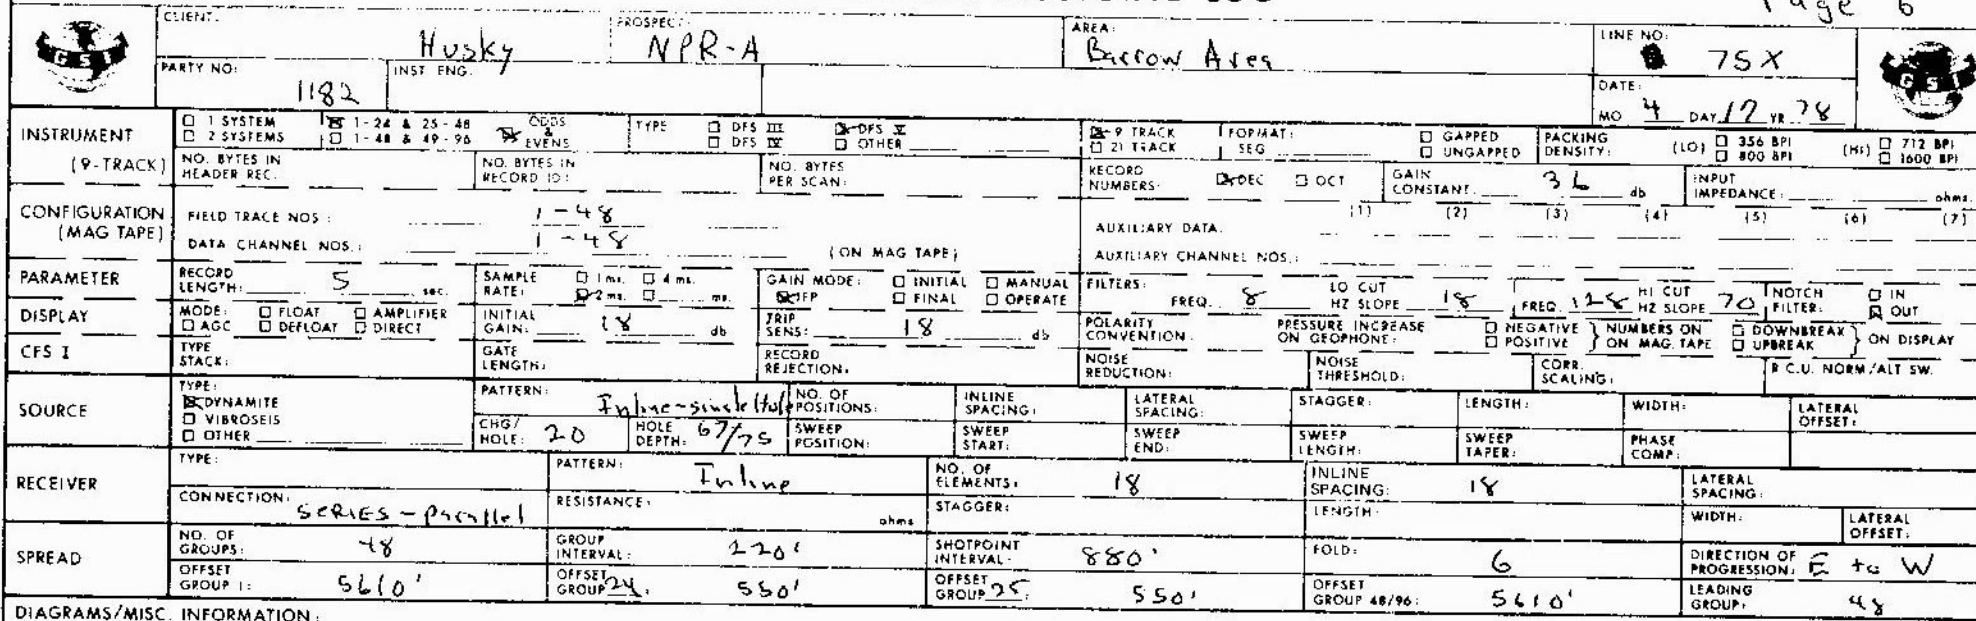 Page 6
CLIENT: Husky PROSPECT: NPR-A AREA: Barrow Area LINE NO: 75X
GSI
PARTY NO: 1182 INST ENG.
DATE: MO 4 DAY 12 YR 78
GSI
INSTRUMENT (9-TRACK)
1 SYSTEM 1-24 & 25-48 ODDS & EVENS TYPE DFS III DFS V 9 TRACK FORMAT: GAPPED PACKING DENSITY: (LO) 356 BPI (HI) 712 BPI
2 SYSTEMS 1-48 & 49-96 DFS IV OTHER 21 TRACK SEG UNGAPPED 800 BPI 1600 BPI
NO. BYTES IN HEADER REC. NO. BYTES IN RECORD ID: NO. BYTES PER SCAN: RECORD NUMBERS: DEC OCT GAIN CONSTANT 36 db INPUT IMPEDANCE: ohms.
CONFIGURATION (MAG TAPE)
FIELD TRACE NOS: 1-48 (1) (2) (3) (4) (5) (6) (7)
AUXILIARY DATA.
DATA CHANNEL NOS.: 1-48 (ON MAG TAPE) AUXILIARY CHANNEL NOS.:
PARAMETER RECORD LENGTH: 5 sec. SAMPLE RATE: 1 ms. 4 ms. 2 ms. ms. GAIN MODE: INITIAL MANUAL IFP FINAL OPERATE FILTERS: FREQ. 8 LO CUT HZ SLOPE 18 FREQ. 128 HI CUT HZ SLOPE 70 NOTCH FILTER: IN OUT
DISPLAY MODE: FLOAT AMPLIFIER AGC DEFLOAT DIRECT INITIAL GAIN: 18 db TRIP SENS: 18 db POLARITY CONVENTION: PRESSURE INCREASE ON GEOPHONE: NEGATIVE POSITIVE } NUMBERS ON MAG. TAPE DOWNBREAK UPBREAK } ON DISPLAY
CFS I TYPE STACK: GATE LENGTH: RECORD REJECTION: NOISE REDUCTION: NOISE THRESHOLD: CORR. SCALING: R.C.U. NORM/ALT SW.
SOURCE TYPE: DYNAMITE VIBROSEIS OTHER PATTERN: Inline-single Hole NO. OF POSITIONS: INLINE SPACING: LATERAL SPACING: STAGGER: LENGTH: WIDTH: LATERAL OFFSET:
CHG/HOLE: 20 HOLE DEPTH: 67/75 SWEEP POSITION: SWEEP START: SWEEP END: SWEEP LENGTH: SWEEP TAPER: PHASE COMP:
RECEIVER TYPE: PATTERN: Inline NO. OF ELEMENTS: 18 INLINE SPACING: 18 LATERAL SPACING:
CONNECTION: SERIES - Parallel RESISTANCE: ohms STAGGER: LENGTH: WIDTH: LATERAL OFFSET:
SPREAD NO. OF GROUPS: 48 GROUP INTERVAL: 220' SHOTPOINT INTERVAL: 880' FOLD: 6 DIRECTION OF PROGRESSION: E to W
OFFSET GROUP 1: 5610' OFFSET GROUP 24: 550' OFFSET GROUP 25: 550' OFFSET GROUP 48/96: 5610' LEADING GROUP: 48
DIAGRAMS/MISC. INFORMATION: